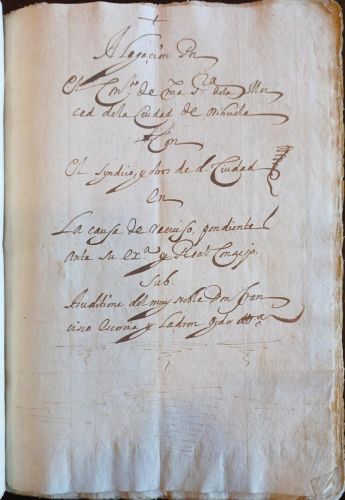 Alegacion Por
El Con.to de nra S.ra dela Mer
ced dela Ciudad de orihuela
Con
El syndico, y otros de d. Ciudad
en
La causa de recurso, pendiente
ante su ex.a y Real Consejo.
Sub.
Auditione del muy noble Don Fran
cisco Escorcia y Ladron oydor